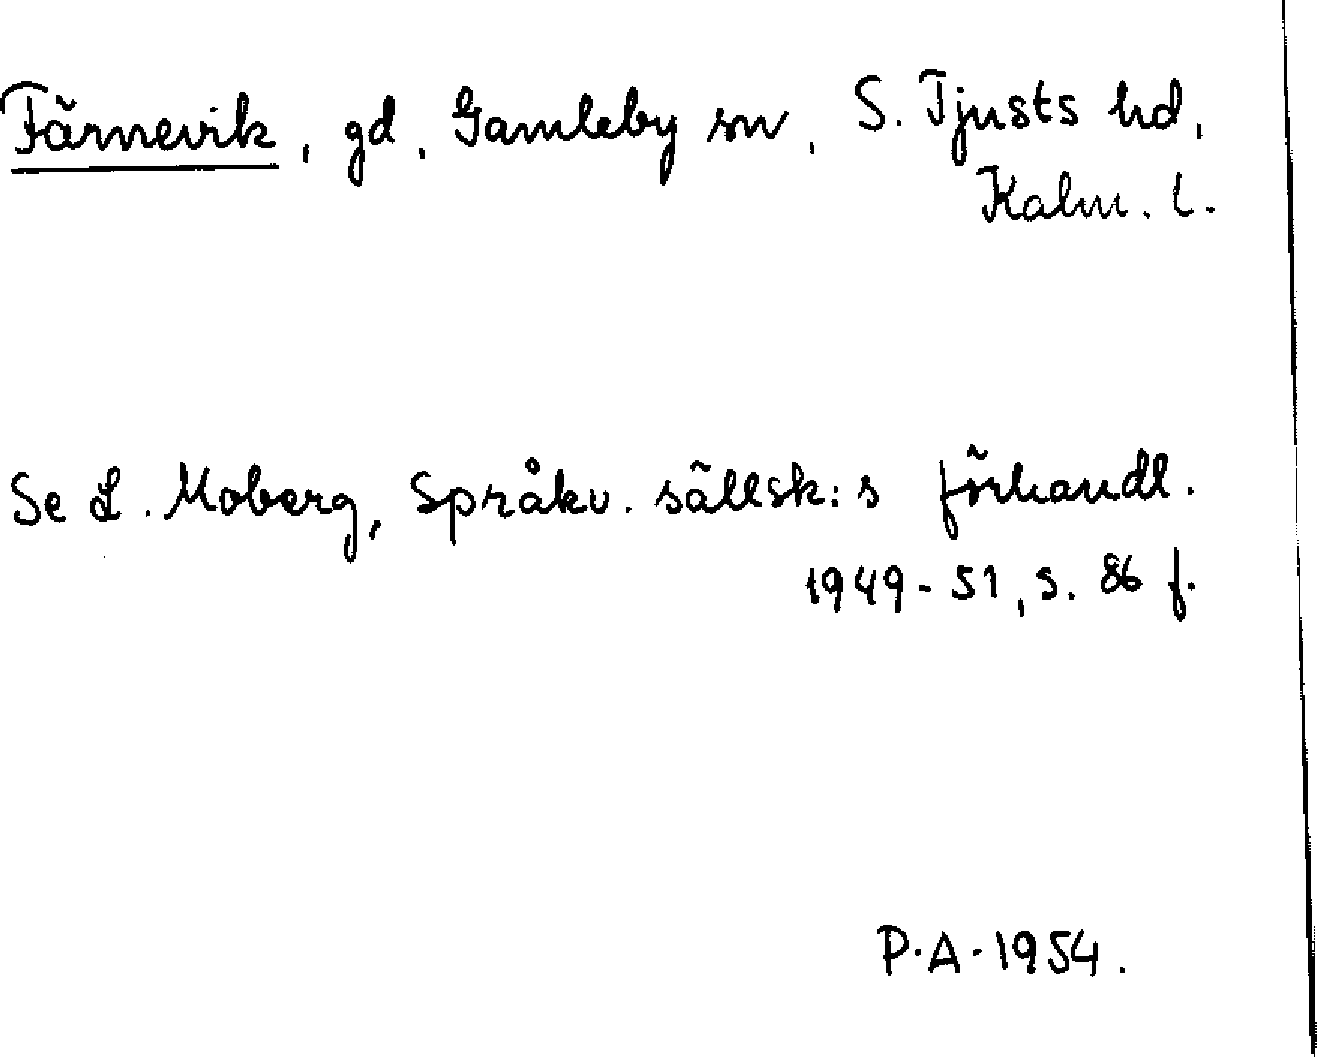 Färnevik, gd, Gamleby sn, S. Tjusts hd,
Kalm. l.
Se L. Moberg, Språkv. sällsk:s förhandl.
1949-51, s. 86 f.
P.A. 1954.